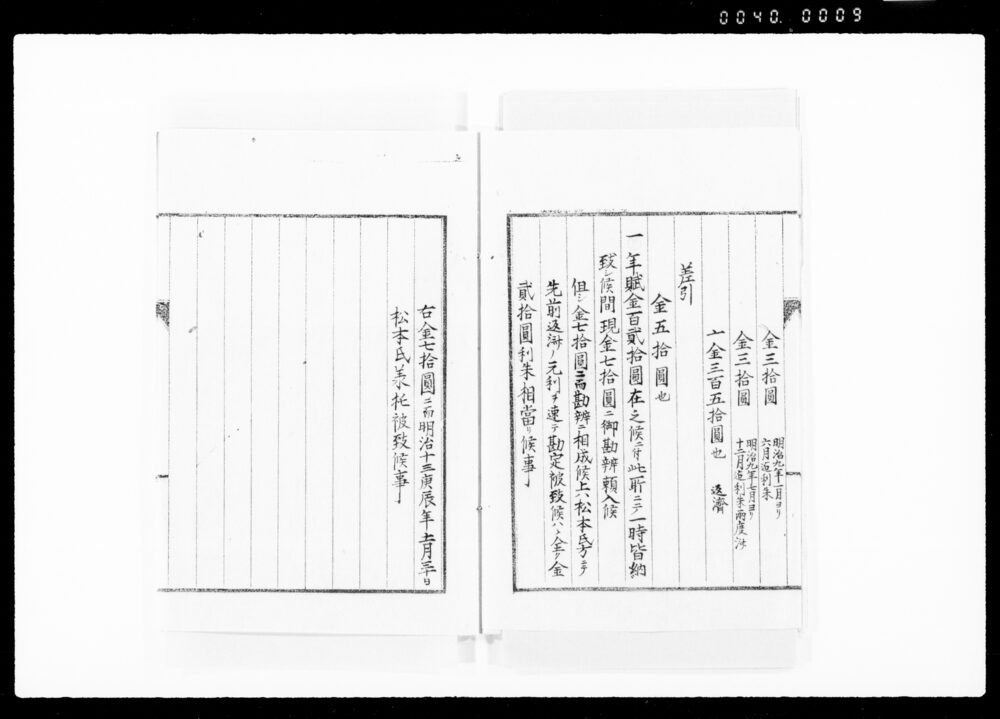 0040. 0009
金三拾圓 明治九年一月ヨリ
六月迄利朱
金三拾圓 明治九年七月ヨリ
十二月迄利朱兩度渡
〆金三百五拾圓也 返濟
差引
金五拾圓也
一 年賦金百貳拾圓在之候ニ付此所ニテ一時皆納
致シ候間現金七拾圓ニ御勘辨頼入候
但シ金七拾圓ニ而勘辨ニ相成候上ハ松本氏方ニテ
先前返濟ノ元利ヲ連テ勘定被致候ハヽ全ク金
貳拾圓利朱相當リ候事
右金七拾圓ニ而明治十三庚辰年十二月三十日
松本氏義托被致候事